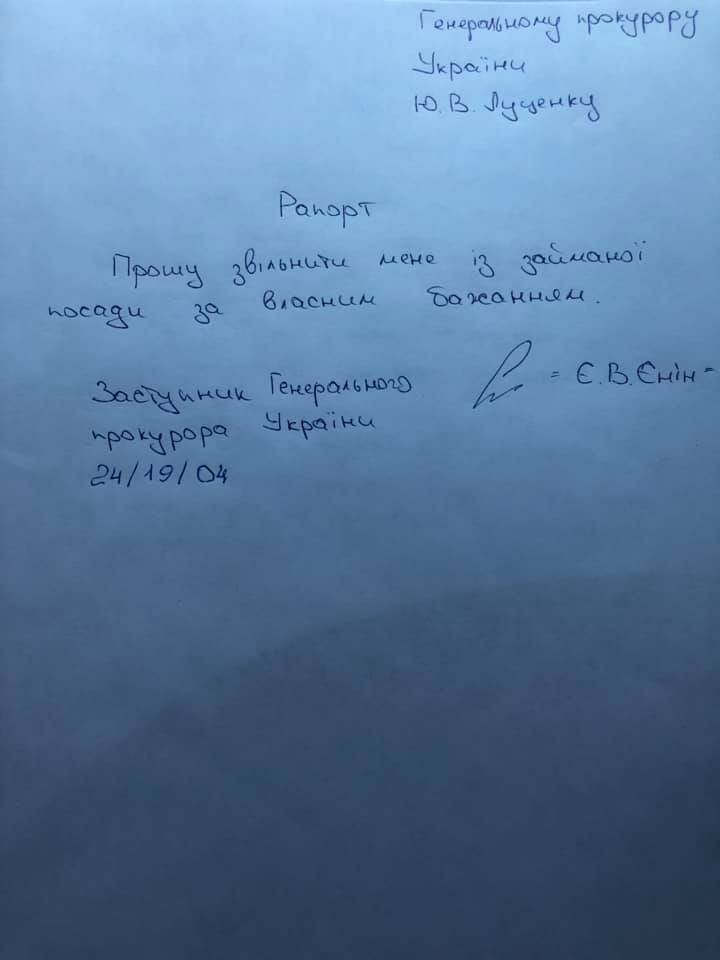 Генеральному прокурору
України
Ю.В. Луценку
Рапорт
Прошу звільнити мене із займаної
посади за власним бажанням.
Заступник Генерального
прокурора України
= Є.В. Єнін =
24/19/04